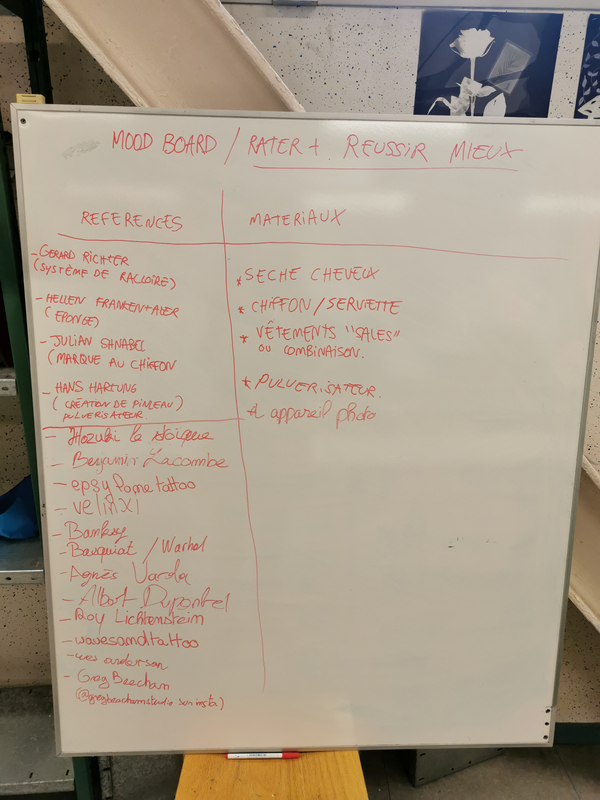 MOOD BOARD / RATER + REUSSIR MIEUX
REFERENCES
- GERARD RICHTER
(SYSTÈME DE RACLOIRE)
- HELLEN FRANKENTALER
(EPONGE)
- JULIAN SHNABEL
(MARQUE AU CHIFFON
- HANS HARTUNG
(CRÉATION DE PINCEAU)
PULVERISATEUR
- Hozuki le stoique
- Benjamin Lacombe
- epsylonetattoo
- velinxi
- Banksy
- Basquiat / Warhol
- Agnès Varda
- Albert Dupontel
- Roy Lichtenstein
- wavesandtattoo
- wes anderson
- Greg Beecham
(@gregbeechamstudio sur insta)
MATERIAUX
* SECHE CHEVEUX
* CHIFFON / SERVIETTE
* VÊTEMENTS "SALES"
OU COMBINAISON.
* PULVERISATEUR.
* appareil photo